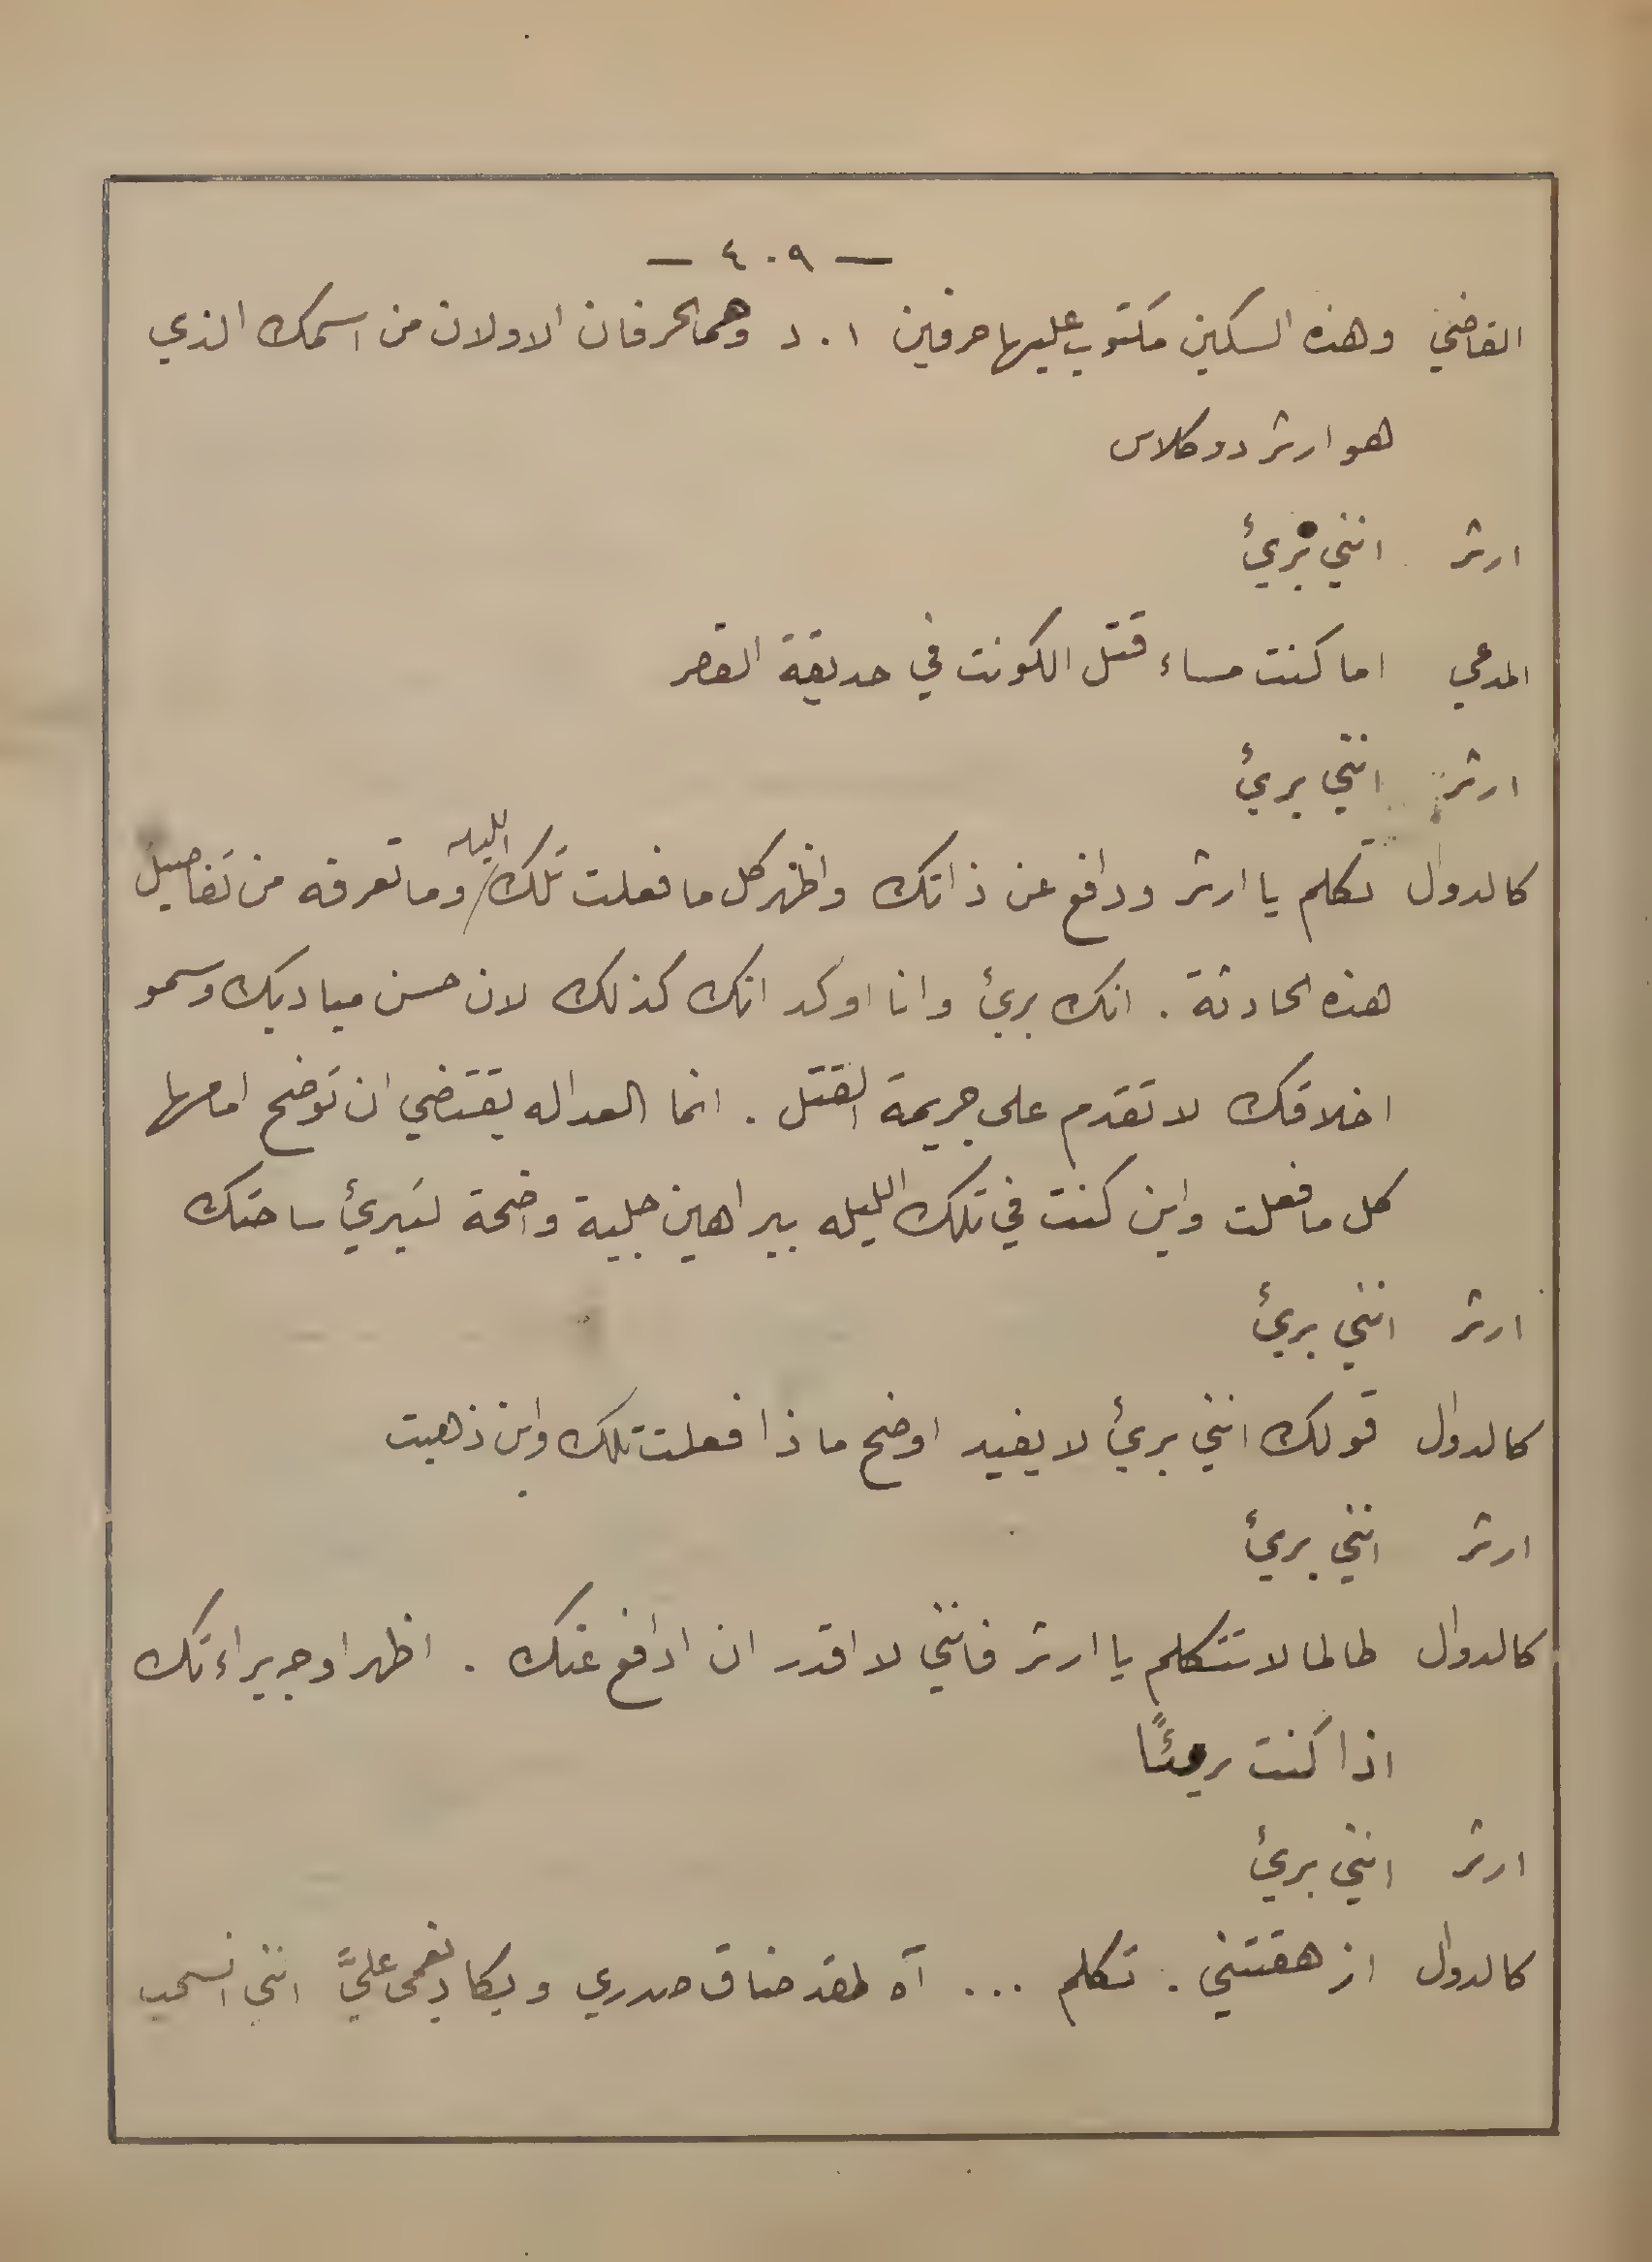 — ٤٠٩ —
القاضي وهذه السكين مكتوب عليها حرفين ا . د وهما الحرفان الاولان من اسمك الذي
هو ارثر دوكلاس
ارثر انني بريئ
المدعي اما كنت مساء قتل الكونت في حديقة القصر
ارثر انني بريئ
كالدوال تكلم يا ارثر ودافع عن ذاتك واظهر كل ما فعلت تلك الليله وما تعرفه من تفاصيل
هذه الحادثة . انك بريئ وانا اوكد انك كذلك لان حسن مباديك وسمو
اخلاقك لا تقدم على جريمة القتل . انما العداله يقتضي ان توضح امامها
كل ما فعلت واين كنت في تلك الليله ببراهين جلية واضحة لتبرئ ساحتك
ارثر انني بريئ
كالدوال قولك انني بريئ لا يفيد اوضح ماذا فعلت تلك واين ذهبت
ارثر انني بريئ
كالدوال طالما لا تتكلم يا ارثر فانني لا اقدر ان ادافع عنك . اظهر اوجه براءتك
اذا كنت بريئًا
ارثر انني بريئ
كالدوال ازهقتني . تكلم ... آه لقد ضاق صدري ويكاد يغمى عليَّ انني انسحب